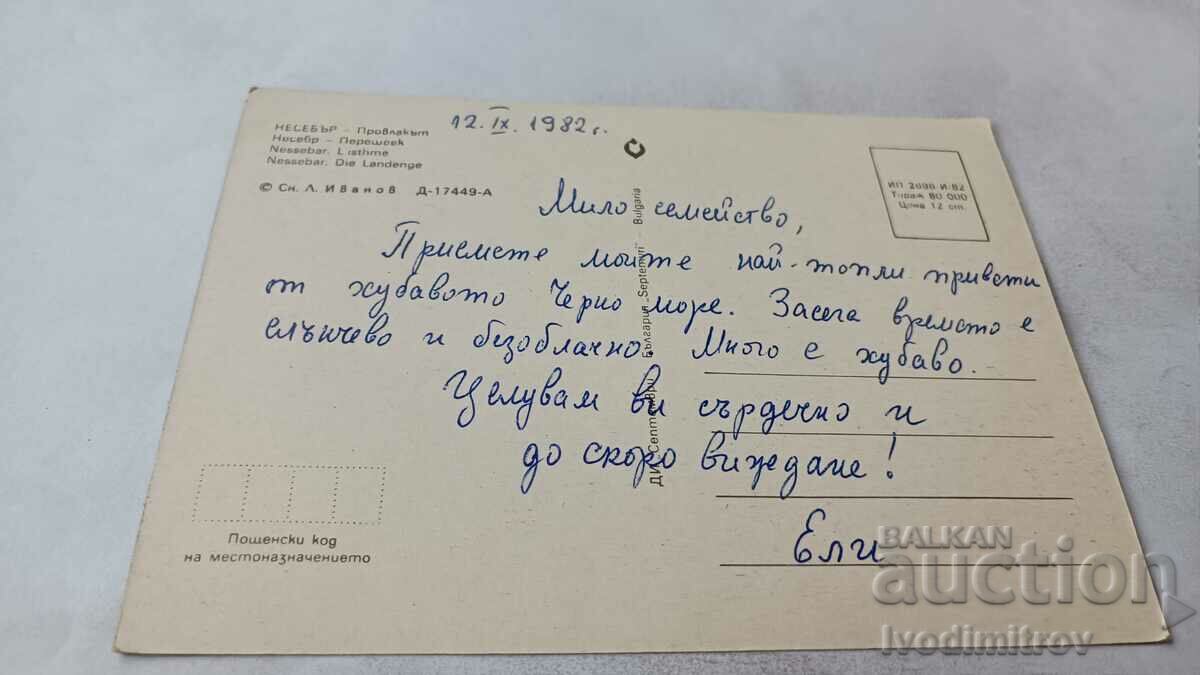 12.IX.1982 г.
НЕСЕБЪР – Провлакът
Несебр – Перешеек
Nessebar. L'isthme
Nessebar. Die Landenge
© Сн. Л. Иванов Д-17449-А
ИП 2090-И-82
Тираж 80 000
Цена 12 ст.
ДИ „Септември“ – България „Septemvri“ – Bulgaria
Мило семейство,
Приемете моите най-топли привети
от хубавото Черно море. Засега времето е
слънчево и безоблачно. Много е хубаво.
Целувам ви сърдечно и
до скоро виждане!
Ели
Пощенски код
на местоназначението
BALKAN
auction
Ivodimitrov